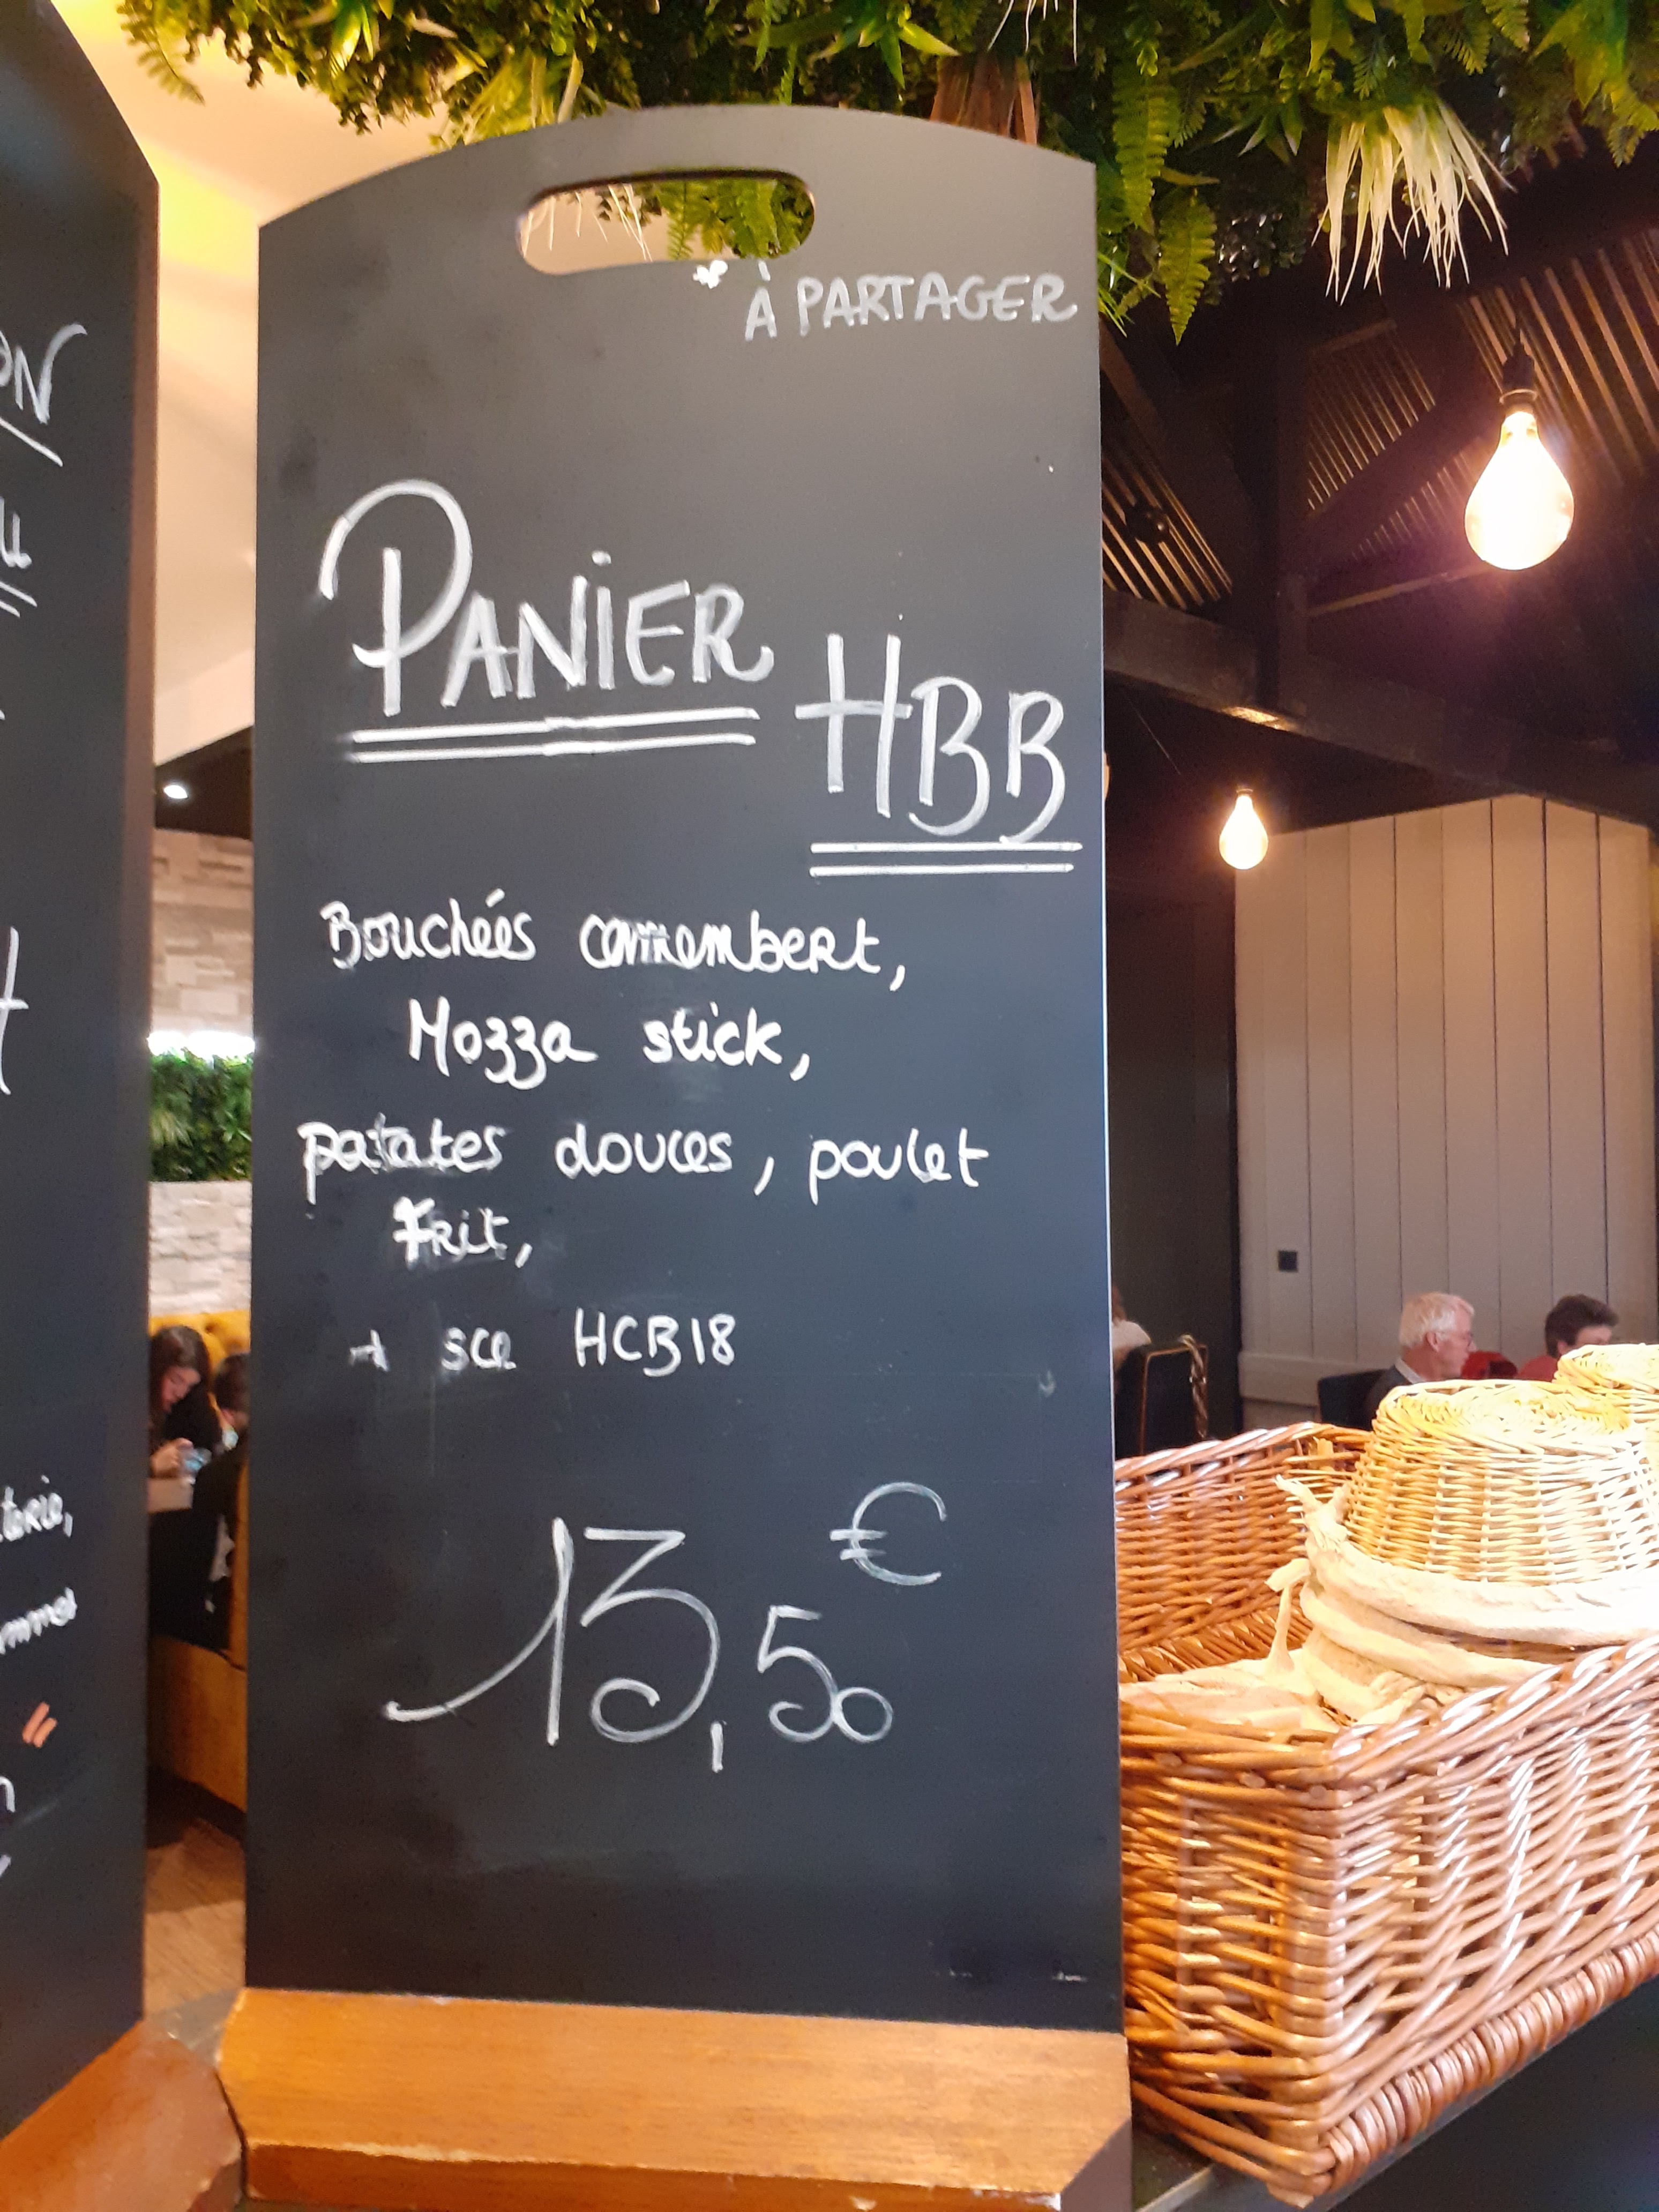 À PARTAGER
PANIER
HBB
Bouchées camembert,
Mozza stick,
patates douces, poulet
Frit,
+ sce HCB18
13,50 €